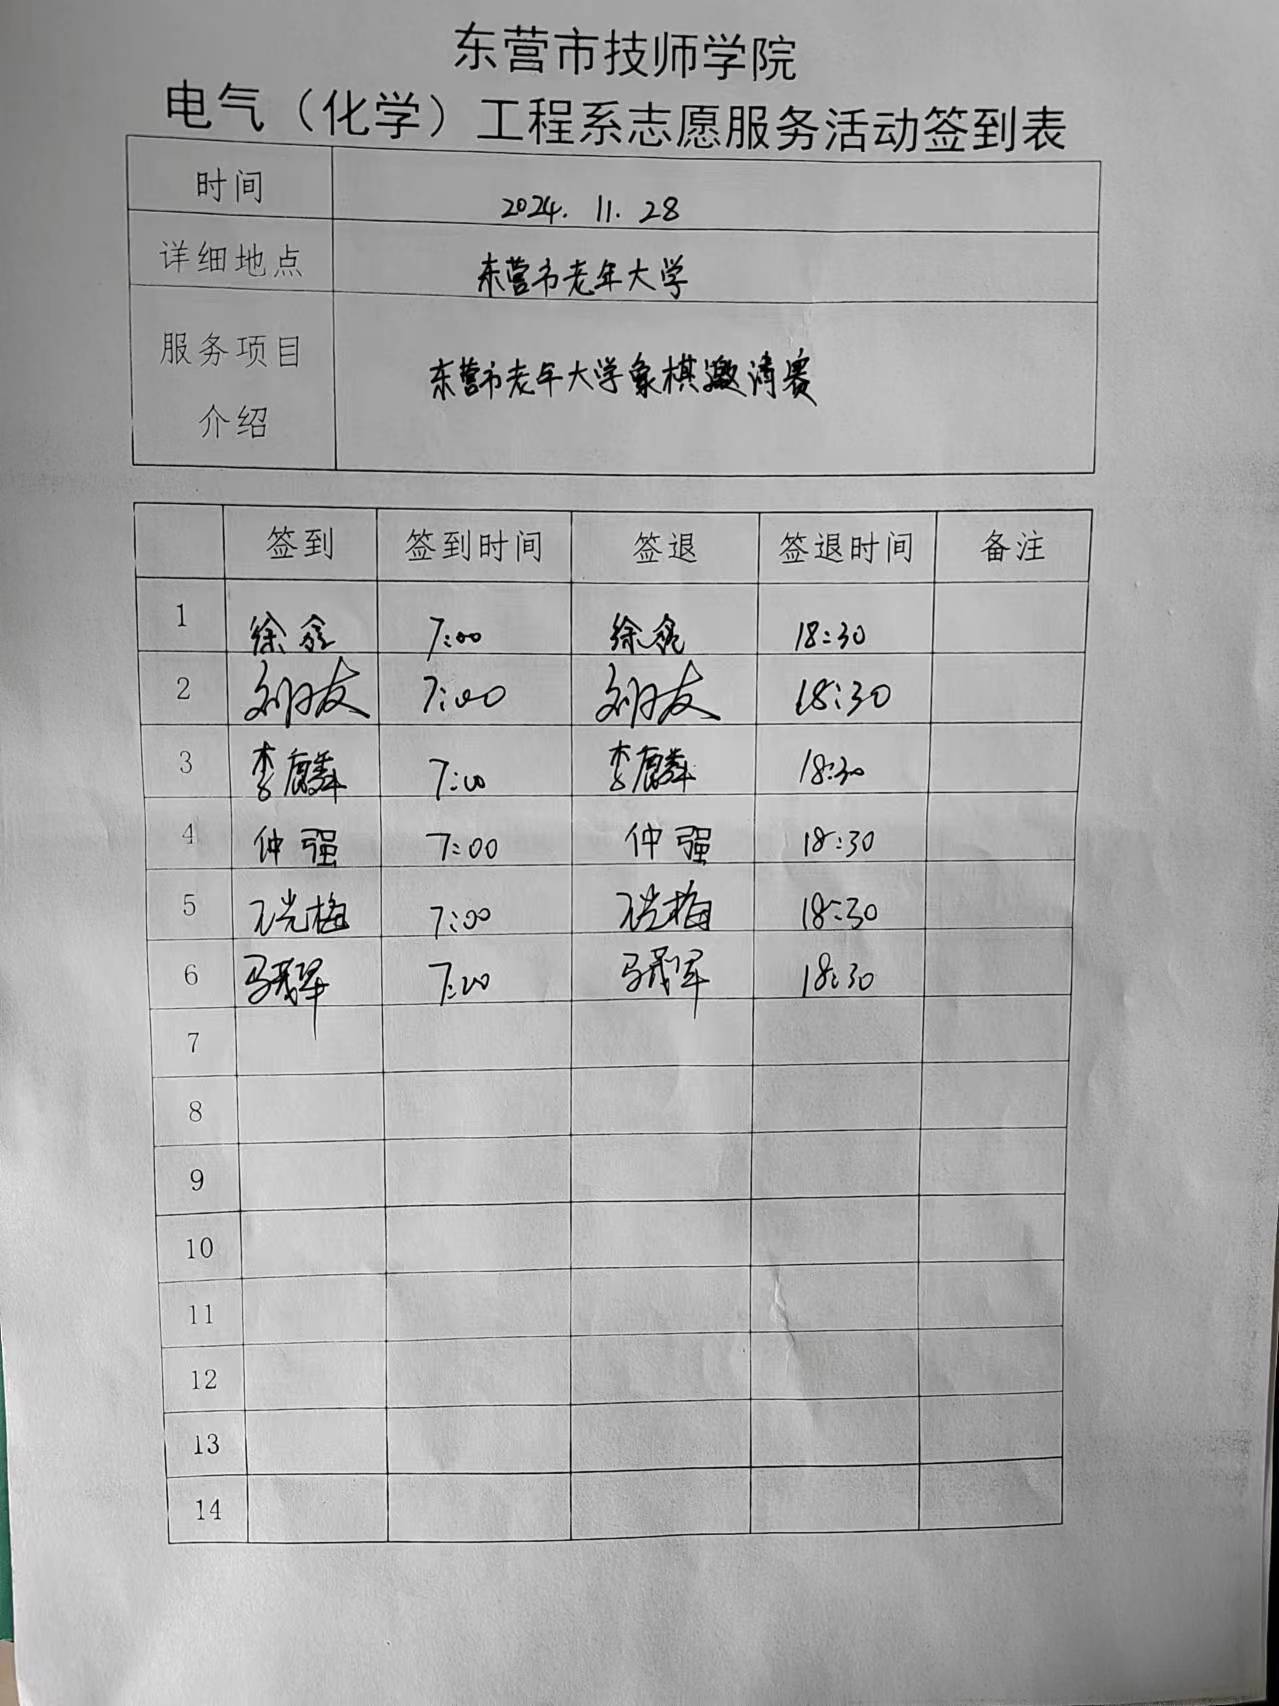 东营市技师学院
电气（化学）工程系志愿服务活动签到表
时间 2024. 11. 28
详细地点 东营市老年大学
服务项目介绍 东营市老年大学象棋邀请赛
签到 签到时间 签退 签退时间 备注
1 徐鑫 7:00 徐鑫 18:30
2 7:00 18:30
3 李麟 7:00 李麟 18:30
4 仲强 7:00 仲强 18:30
5 7:00 18:30
6 马茂军 7:00 马茂军 18:30
7
8
9
10
11
12
13
14